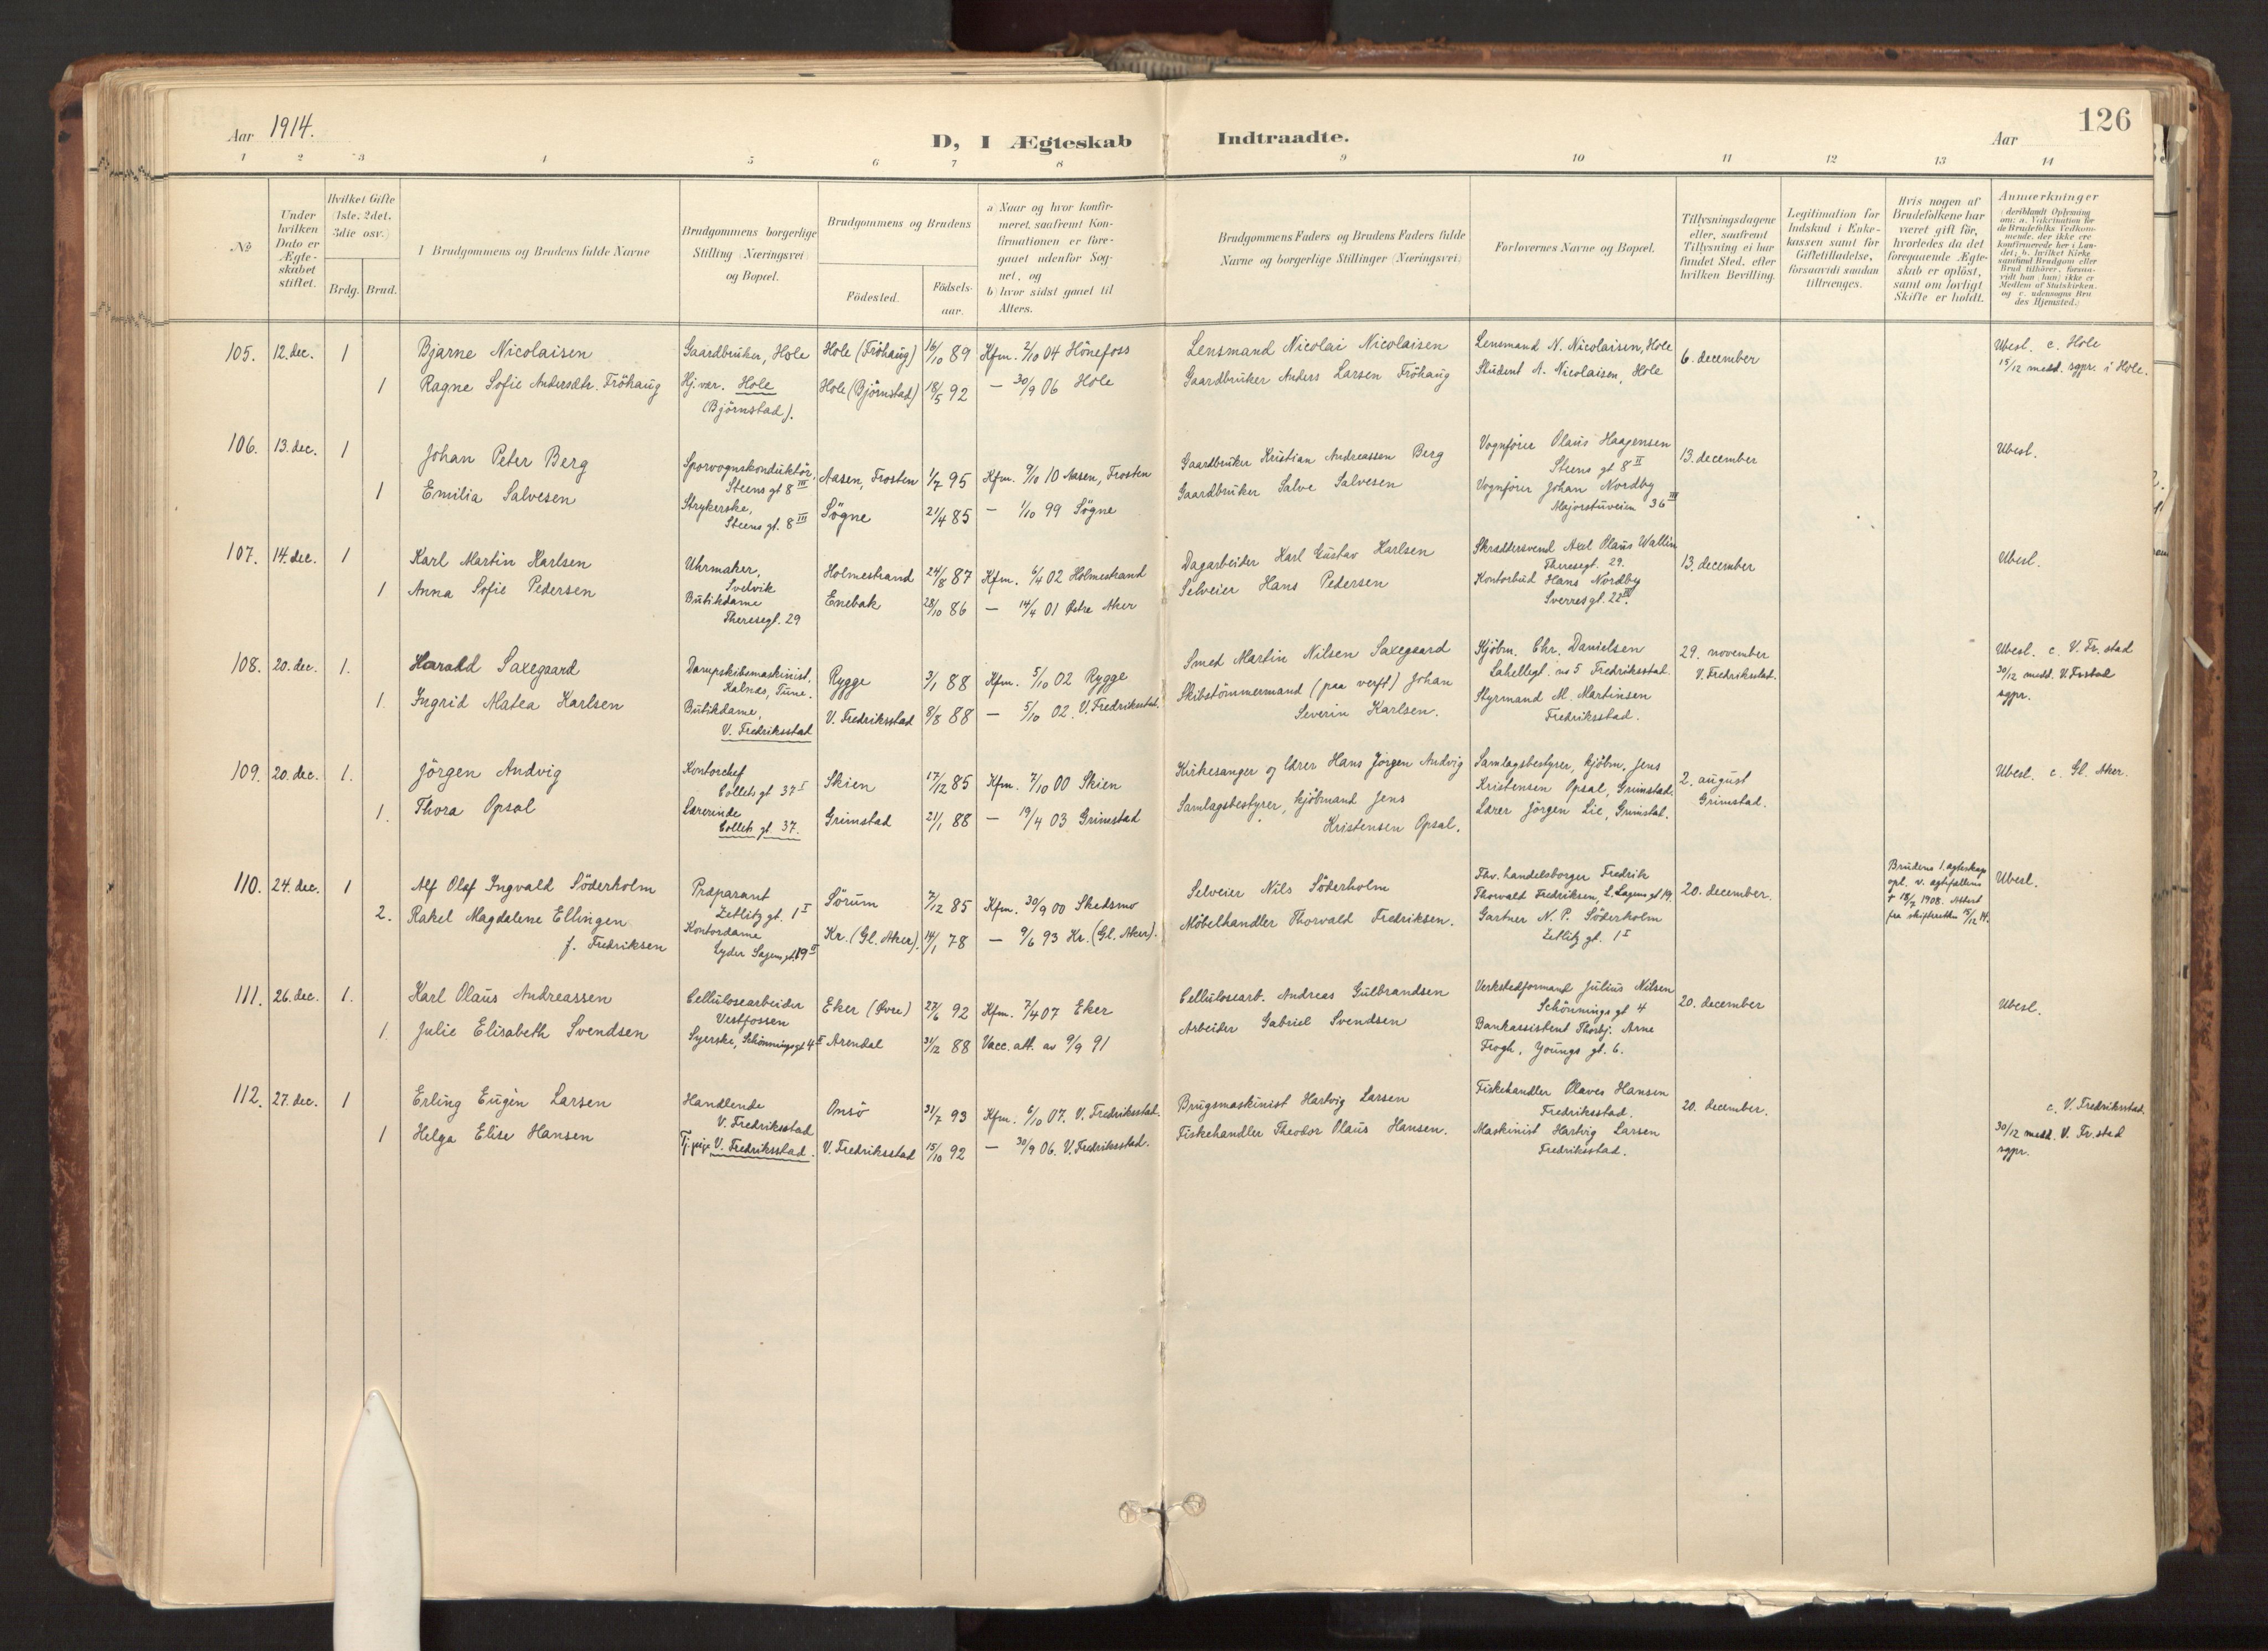 Aar 1914.
D, I Ægteskab Indtraadte.
Aar
126
1 2 3 4 5 6 7 8 9 10 11 12 13 14
No
Under hvilken Dato er Ægteskabet stiftet.
Hvilket Gifte (1ste, 2det, 3die osv.)
Brdg. Brud.
Brudgommens og Brudens fulde Navne
Brudgommens borgerlige Stilling (Næringsvei) og Bopæl.
Brudgommens og Brudens
Födested.
Födsels-aar.
a) Naar og hvor konfirmeret, saafremt Konfirmationen er foregaaet udenfor Sognet, og
b) hvor sidst gaaet til Alters.
Brudgommens Faders og Brudens Faders fulde Navne og borgerlige Stillinger (Næringsvei)
Forlovernes Navne og Bopæl.
Tillysningsdagene eller, saafremt Tillysning ei har fundet Sted, efter hvilken Bevilling.
Legitimation for Indskud i Enkekassen samt for Giftetilladelse, forsaavidt saadan tiltrænges.
Hvis nogen af Brudefolkene har været gift för, hvorledes da det foregaaende Ægteskab er oplöst, samt om lovligt Skifte er holdt.
Anmærkninger (deriblandt Oplysning om: a. Vakcination for de Brudefolks Vedkommende, der ikke ere konfirmerede her i Landet; b. hvilket Kirkesamfund Brudgom eller Brud tilhörer, forsaavidt han (hun) ikke er Medlem af Statskirken, og c. udensogns Brudes Hjemsted.)
105. 12. dec. 1 Bjarne Nicolaisen Gaardbruker, Hole Hole (Fröhaug) 16/10 89 Kfm. 2/10 04 Hönefoss Lensmand Nicolai Nicolaisen Lensmand N. Nicolaisen, Hole 6. december Ubesl. c. Hole
1 Ragne Sofie Andersdtr. Fröhaug Hj.vær. Hole Hole (Björnstad) 18/5 92 — 30/9 06 Hole Gaardbruker Anders Larsen Fröhaug Student A. Nicolaisen, Hole 15/12 medd. sgpr. i Hole.
(Björnstad).
106. 13. dec. 1 Johan Peter Berg Sporvognskonduktör, Aasen, Frosten 1/7 95 Kfm. 9/10 10 Aasen, Frosten Gaardbruker Kristian Andreassen Berg Vognförer Olaus Haagensen 13. december Ubesl.
Steens gt 8 III Steens gt 8 II
1 Emilia Salvesen Strykerske, Sögne 21/4 85 — 1/10 99 Sögne Gaardbruker Salve Salvesen Vognförer Johan Nordby
Steens gt. 8 III Majorstuveien 36 III
107. 14. dec. 1 Karl Martin Karlsen Uhrmaker, Holmestrand 24/8 87 Kfm. 6/4 02 Holmestrand Dagarbeider Karl Gustav Karlsen Skræddersvend Axel Olaus Wallin 13. december Ubesl.
Svelvik Theresegt. 29.
1 Anna Sofie Pedersen Butikdame Enebak 28/10 86 — 14/4 01 Östre Aker Selveier Hans Pedersen Kontorbud Hans Nordby
Theresegt. 29 Sverres gt. 22
108. 20. dec. 1. Harald Saxegaard Dampskibsmaskinist, Rygge 3/1 88 Kfm. 5/10 02 Rygge Smed Martin Nilsen Saxegaard Kjöbm. Chr. Danielsen 29. november Ubesl. c. V. Fr.stad
Kalnæs, Tune. Lahellegt. no 5 Fredriksstad. V. Fredriksstad. 30/12 medd. V. Fr.stad
1. Ingrid Matea Karlsen Butikdame, V. Fredriksstad 8/8 88 — 5/10 02. V. Fredriksstad. Skibstömmermand (paa verft) Johan Styrmand M. Martinsen sgpr.
V. Fredriksstad Severin Karlsen. Fredriksstad.
109. 20. dec. 1. Jörgen Andvig Kontorchef Skien 17/12 85 Kfm. 7/10 00 Skien Kirkesanger og lærer Hans Jörgen Andvig Samlagsbestyrer, kjöbm. Jens 2. august Ubesl. c. Gl. Aker.
Collets gt 37 I Kristensen Opsal, Grimstad. Grimstad.
1. Thora Opsal Lærerinde Grimstad 21/1 88 — 19/4 03 Grimstad Samlagsbestyrer, kjöbmand Jens Lærer Jörgen Lie, Grimstad.
Collets gt. 37. Kristensen Opsal.
110. 24. dec. 1 Alf Olaf Ingvald Söderholm Præparant Sörum 7/12 85 Kfm. 30/9 00 Skedsmo Selveier Nils Söderholm Fhv. handelsborger Fredrik 20. december. Brudens 1. egteskap Ubesl.
Zetlitz gt. 1 I Thorvald Fredriksen, L. Sagens gt 19. opl. v. egtefællens
2. Rakel Magdalene Ellingen Kontordame Kr. (Gl. Aker). 14/1 78 — 9/6 93 Kr. (Gl. Aker). Möbelhandler Thorvald Fredriksen. Gartner N. P. Söderholm † 18/7 1908. Attest
f. Fredriksen Lyder Sagens gt. 19 II Zetlitz gt. 1 I fra skifteretten 15/12 14.
111. 26. dec. 1. Karl Olaus Andreassen Cellulosearbeider Eker (Övre) 27/6 92 Kfm. 7/4 07 Eker Cellulosearb. Andreas Gulbrandsen Verkstedformand Julius Nilsen 20. december Ubesl.
Vestfossen Schönnings gt 4
1. Julie Elisabeth Svendsen Syerske, Schönningsgt 4 II Arendal 31/12 88 Vacc. att. av 9/9 91 Arbeider Gabriel Svendsen Bankassistent Thorbj. Arne
Frogh, Youngs gt. 6.
112. 27. dec. 1 Erling Eugen Larsen Handlende Onsö 31/7 93 Kfm. 6/10 07. V. Fredriksstad. Brugsmaskinist Hartvig Larsen Fiskehandler Olaves Hansen 20. december. c. V. Fredriksstad.
V. Fredriksstad Fredriksstad.
1 Helga Elise Hansen Tj.pige, V. Fredriksstad. V. Fredriksstad 15/10 92 — 30/9 06. V. Fredriksstad. Fiskehandler Theodor Olaus Hansen. Maskinist Hartvig Larsen 30/12 medd. V. Fr.stad
Fredriksstad. sgpr.